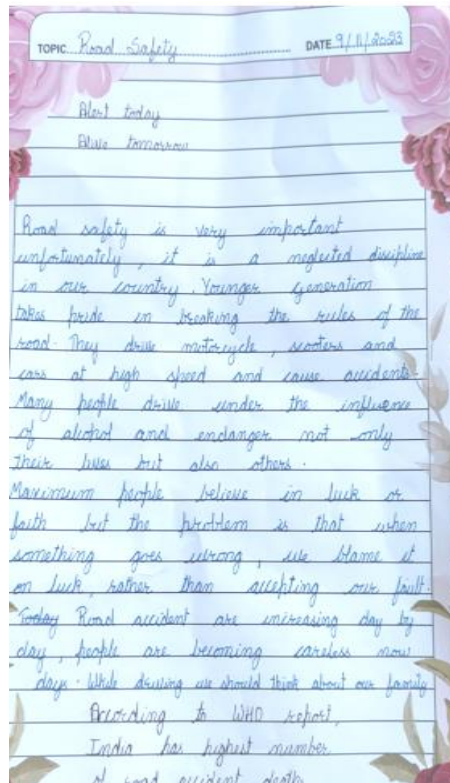 TOPIC Road Safety DATE 9/11/2023
Alert today
Alive tomorrow
Road safety is very important
unfortunately, it is a neglected discipline
in our country. Younger generation
takes pride in breaking the rules of the
road. They drive motorcycle, scooters and
cars at high speed and cause accidents.
Many people drive under the influence
of alcohol and endanger not only
their lives but also others.
Maximum people believe in luck or
faith but the problem is that when
something goes wrong, we blame it
on luck, rather than accepting our fault.
Today Road accident are increasing day by
day, people are becoming careless now
days. While driving we should think about our family
According to WHO report,
India has highest number
of road accident death